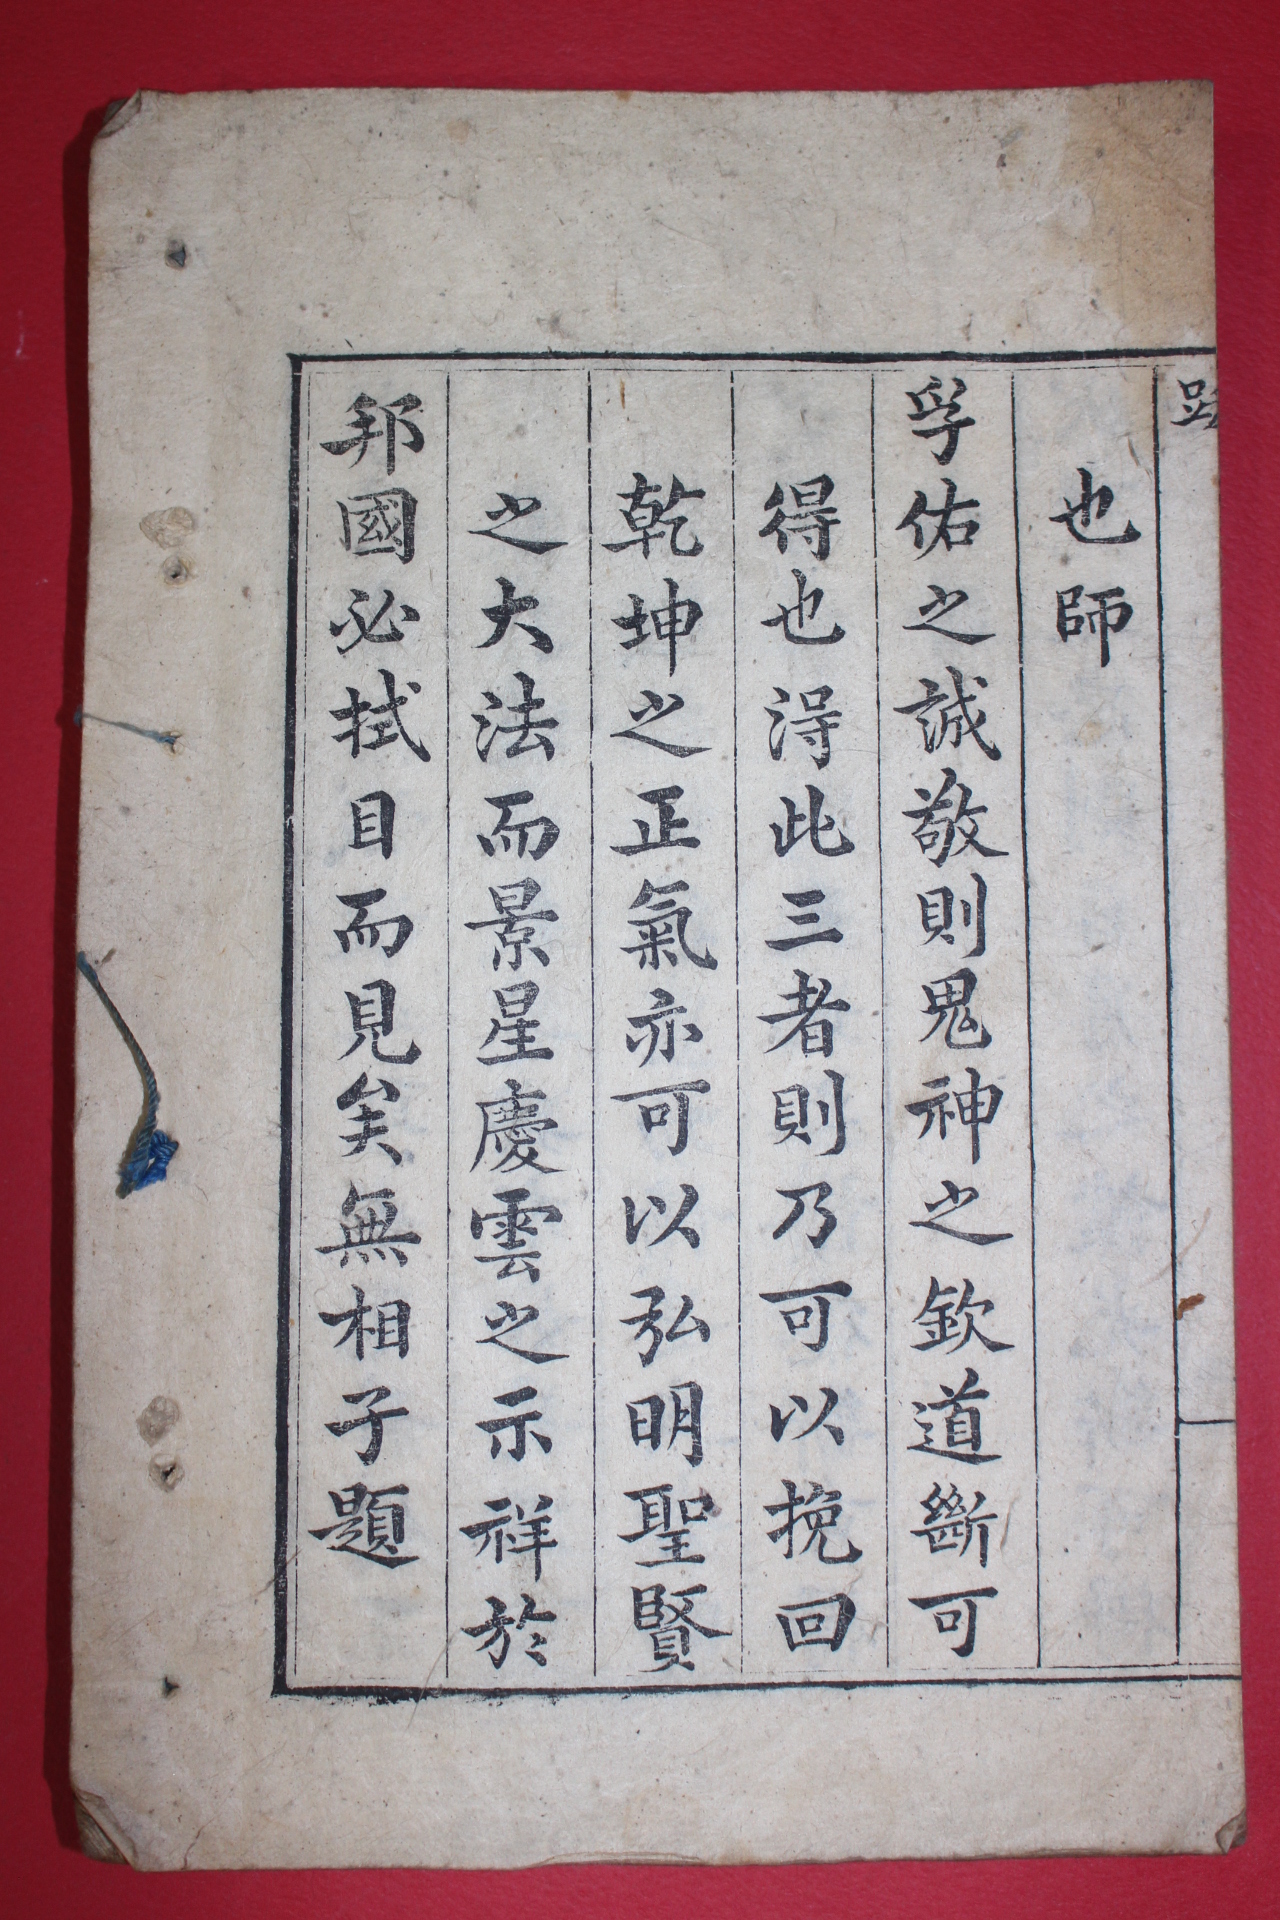 也師
孚佑之誠敬則鬼神之欽道斷可
得也淂此三者則乃可以挽回
乾坤之正氣亦可以弘明聖賢
之大法而景星慶雲之示祥於
邦國必拭目而見矣無相子題